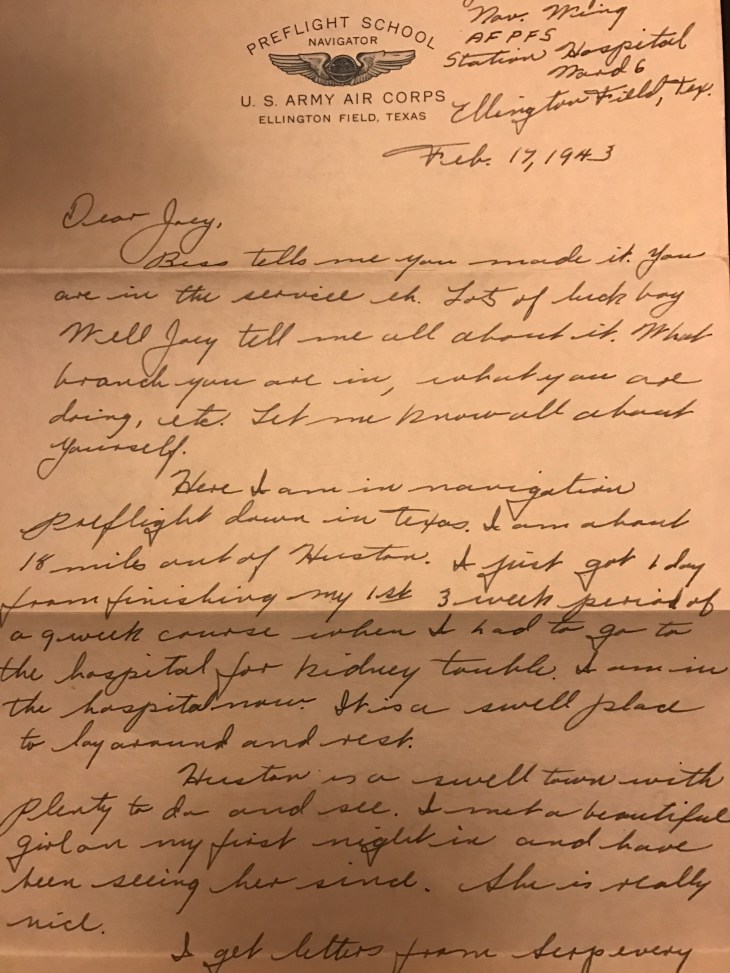 PREFLIGHT SCHOOL
NAVIGATOR
U. S. ARMY AIR CORPS
ELLINGTON FIELD, TEXAS
Nav. Wing
AFPFS
Station Hospital
Ward 6
Ellington Field, Tex.
Feb. 17, 1943
Dear Joey,
Bess tells me you made it. You
are in the service eh. Lots of luck boy
Well Joey tell me all about it. What
branch you are in, what you are
doing, etc. Let me know all about
yourself.
Here I am in navigation
Preflight down in Texas. I am about
18 miles out of Huston. I just got 1 day
from finishing my 1st 3 week period of
a 9 week course when I had to go to
the hospital for kidney touble. I am in
the hospital now. It is a swell place
to lay around and rest.
Huston is a swell town with
plenty to do and see. I met a beautiful
girl on my first night in and have
been seeing her since. She is really
nice.
I get letters from Serp every